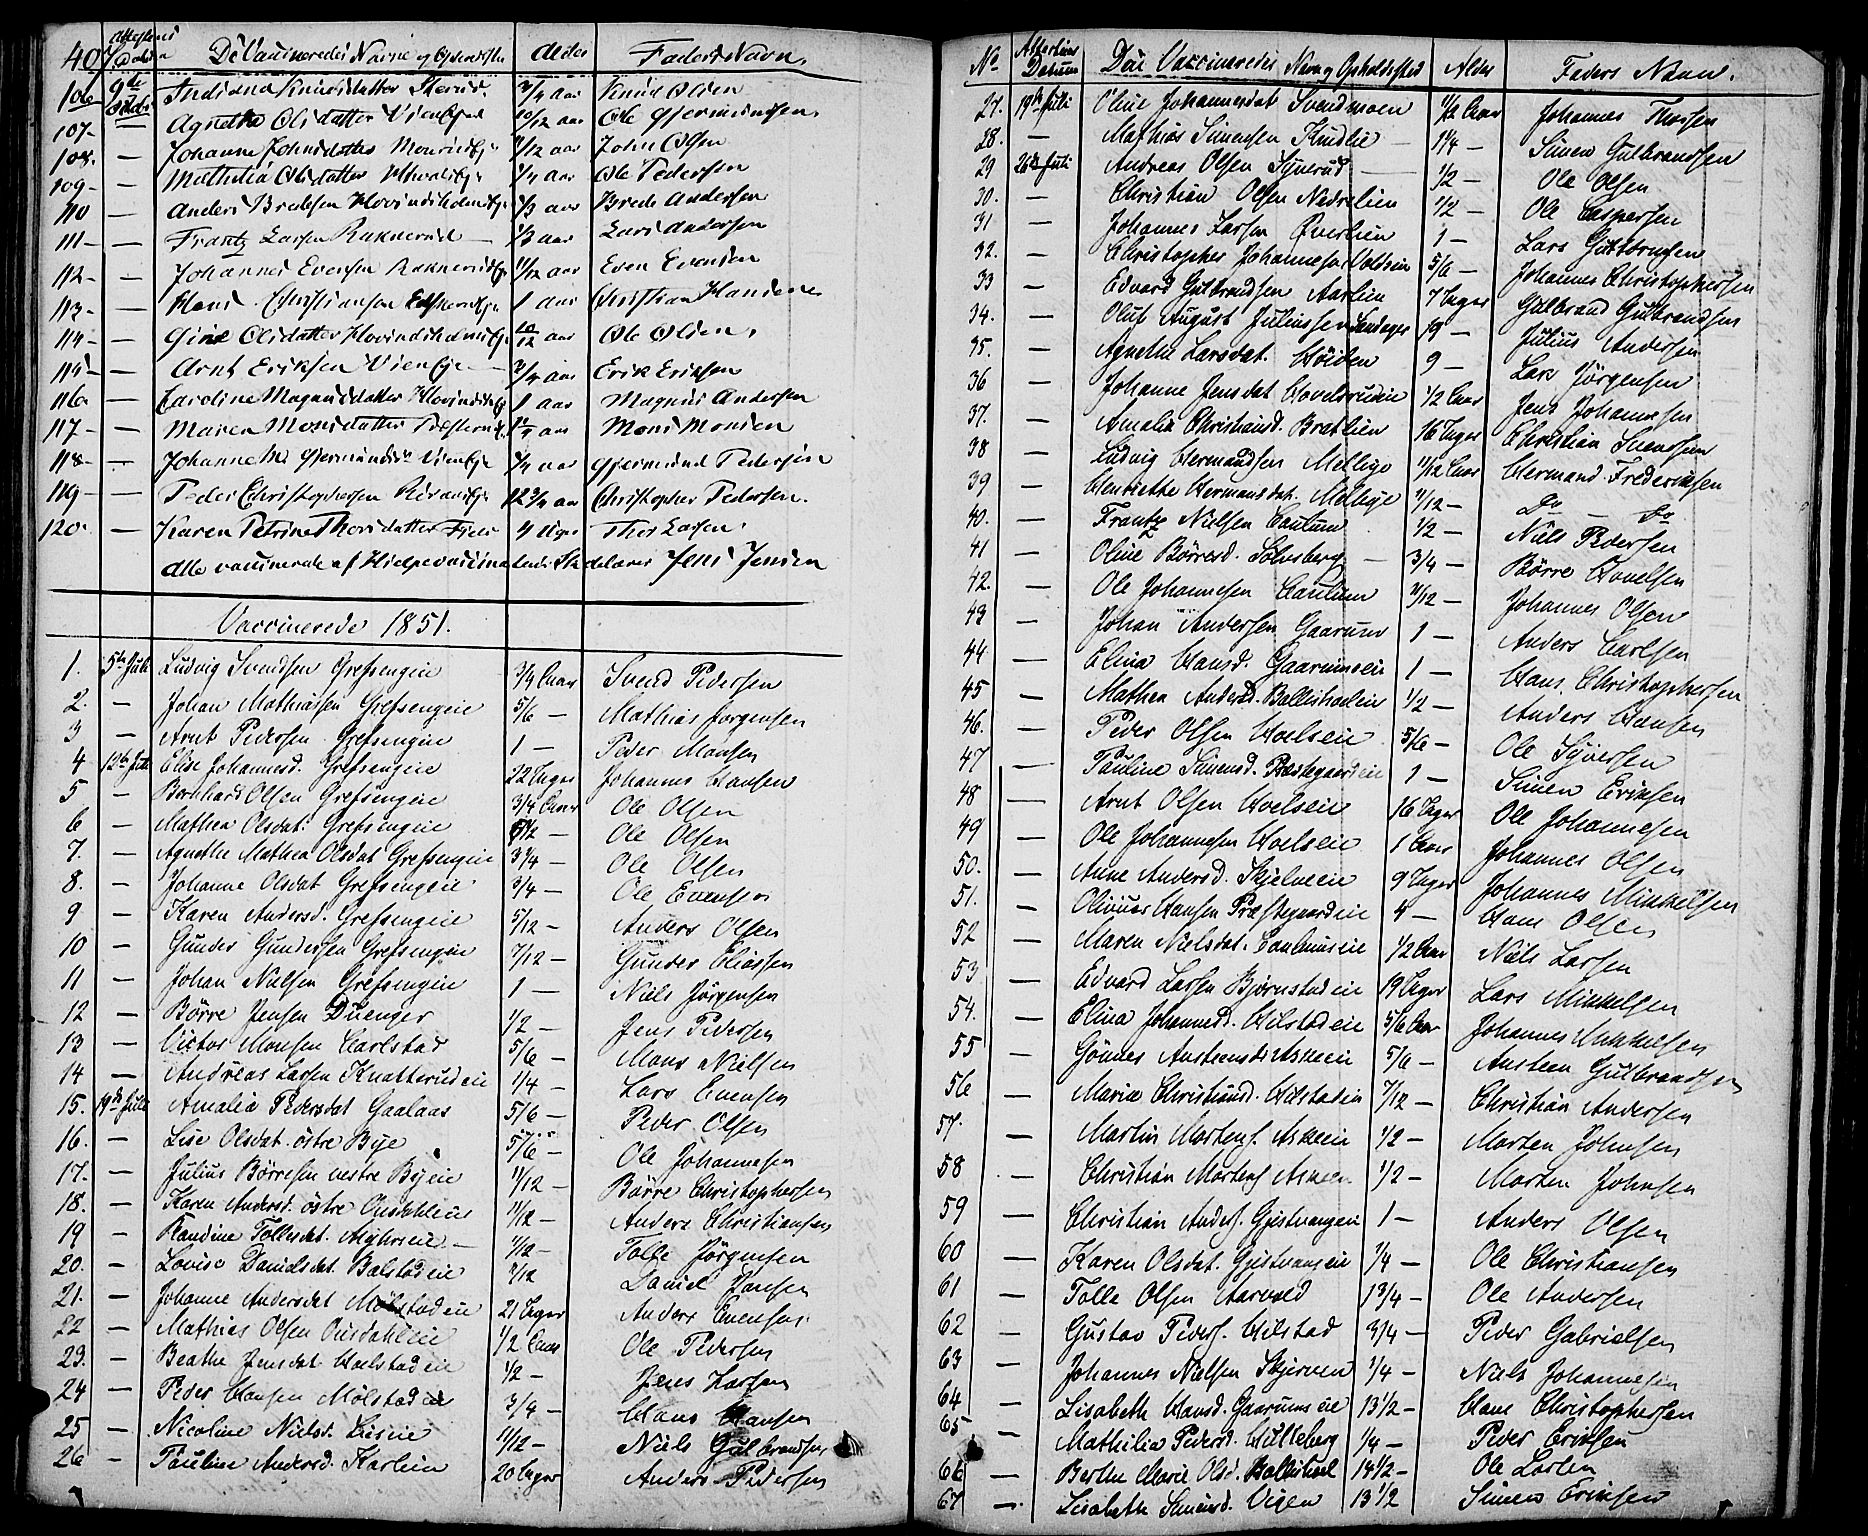 407
Attestens Datum De Vaccineredes Navne og Opholdsted Alder Faders Navn
106 9de Octobr Indiana Knudsdatter 3/4 aar Knud Olsen
107 - Agnethe Olsdatter Vien Eje 10/12 aar Ole Gjermundsen
108 - Johanne Johnsdatter /12 aar John Olsen
109 - Mathilia Olsdatter 1/4 aar Ole Pedersen
110 - Anders Bredesen Hovindsholms Eje 1/3 aar Brede Andersen
111 - Frantz Larsen Raknerud 1/3 aar Lars Andersen
112 - Johannes Evensen Raknerud Eje 11/12 aar Even Evensen
113 - Hans Christiansen 1 aar Christian Hansen
114 - Gine Olsdatter Hovindsholms Eje 10/12 aar Ole Olsen
115 - Arnt Eriksen Vien Eje 3/4 aar Erik Eriksen
116 - Karoline Magnusdatter Hovindsh. Eje 1 aar Magnus Andersen
117 - Maren Monsdatter aar Mons Monsen
118 - Johanne Gjermundsd. Vien Eje 3/4 aar Gjermund Pedersen
119 - Peder Christophersen Eje 12 3/4 aar Christopher Pedersen
120 - Karen Petrine Thorsdatter Fjeld 4 Uger Thor Larsen
alle vaccinerede af Hielpevaccinateur Jens Jensen
Vaccinerede 1851.
1. 5te Juli Ludvig Svendsen Grefsengeie 3/4 Aar Svend Pedersen
2. - Johan Mathiassen Grefsengeie 5/6 - Mathias Jørgensen
3 - Arnt Pedersen Grefsengeie 1 - Peder Monsen
4 12te Juli Elise Johannesd. Grefsengeie 22 Uger Johannes Hansen
5 - Bernhard Olsen Grefsengeie 3/4 Aar Ole Olsen
6 - Mathea Olsdat. Grefsengeie /12 - Ole Olsen
7. - Agnethe Mathea Olsdat Grefsengeie 3 1/4 - Ole Olsen
8. - Johanne Olsdat Grefsengeie 3/4 - Ole Evensen
9 - Karen Andersd. Grefsengeie 5/12 - Anders Olsen
10 - Gunder Gundersen Grefsengeie 7/12 - Gunder Eliassen
11 - Johan Nielsen Grefsengeie 1 - Niels Jørgensen
12 - Børre Jensen Duenger 1/2 - Jens Pedersen
13 - Victor Monsen Carlstad 5/6 - Mons Nielsen
14 - Andreas Larsen Knatterudeie 1/4 - Lars Evensen
15. 19de Juli Amalia Pedersdat Gaalaas 5/6 - Peder Olsen
16. - Lise Olsdat. østre Bye 5/6 - Ole Johannesen
17. - Julius Børresen vestre Byeeie 11/12 - Børre Christophersen
18. - Karen Andersd. østre Ousdahleie 11/12 - Anders Christiansen
19 - Randine Tollesdat. 11/12 - Tolle Jørgensen
20. - Lovise Danielsdat. Balstadeie /12 Daniel Jensen
21. - Johanne Andersdat Mølstadeie 21 Uger Anders Evensen
22 - Mathias Olsen Ousdahleie 1/2 Aar Ole Pedersen
23. - Beathe Jensdat Hoelstadeie 1/2 - Jens Larsen
24 - Peder Hansen Mølstadeie 3/4 - Hans Hansen
25 - Nicoline Nielsd. 11/12 - Niels Gulbrandsen
26 - Pauline Andersd. Karlien 20 Uger Anders Pedersen
No Attestens Datum Den Vaccineredes Navn og Opholdsted Alder Faders Navn.
27. 19de Juli Oline Johannesdat Svendmoen 1/2 Aar Johannes Thorsen
28. - Mathias Simensen Kindlie 1 1/4 - Simen Gulbrandsen
29 26de Juli Andreas Olsen Syverud 1/2 - Ole Olsen
30. - Christian Olsen Nedrelien 1/2 - Ole Caspersen
31 - Johannes Larsen Øverlien 1 - Lars Guttormsen
32. - Christopher Johannesen 5/6 - Johannes Christophersen
33 - Edvard Gulbrandsen Aarlien 7 Uger Gulbrand Gulbrandsen
34. - Oluf August Juliussen 19 - Julius Andersen
35. - Agnethe Larsdat. Høiden 9 - Lars Jørgensen
36 - Johanne Jensdat Hovelsrudeie 1/2 Aar Jens Johannesen
37. - Amalia Christiansd. Bratlien 16 Uger Christian Svensen
38 - Ludvig Hermandsen Mellige 11/12 Aar Hermand Frederiksen
39 - Henriette Hermansdat. Mellige 11/12 - Do - Do
40. - Frantz Nielsen Caulum 1/2 - Niels Pedersen
41 - Oline Børresd. Solusberg - 3/4 - Børre Hovelsen
42. - Ole Johannesen Caulum /12 - Johannes Olsen
43 - Johan Andersen Gaarum 1 - Anders Carlsen
44 - Elina Hansd. Gaarumseie 1 - Hans Christophersen
45 - Mathea Andersd. Ballishoeleie 1/2 - Anders Hansen
46. - Peder Olsen Hoelseie 5/6 - Ole Syversen
47 - Pauline Simensd. Præstegaardeie 1 - Simen Eriksen
48 - Arnt Olsen Hoelseie 16 Uger Ole Johannesen
49 - Ole Johannesen Hoelseie 1 Aar Johannes Olsen
50. - Anne Andersd. Skjelveeie 9 Uger Johannes Mikkelsen
51. - Olivver Hansen Præstegaardeie 4 - Hans Olsen
52 - Maren Nielsdat. Caulumseie 1/2 Aar Niels Larsen
53 - Edvard Larsen Bjørnstadeie 19 Uger Lars Mikkelsen
54. - Elina Johannesd. Hilstadeie 5/6 Aar Johannes Mikkelsen
55 - Gønner Austeensdr. Askeeie 5/6 - Austeen Gulbrandsen
56 - Maria Christiansd. Hilstadeie 7/12 - Christian Andersen
57. - Martin Mortens. Askeeie 1/2 - Morten Johnsen
58 - Christian Mortens. Askeeie 1/2 - Morten Johnsen
59 - Christian Anders. Gjestvangeie 1 - Anders Olsen
60 - Karen Olsdat. Gjestvangeie 1/4 - Ole Christiansen
61 - Tolle Olsen Aarvold 1 3/4 - Ole Andersen
62 - Gustav Peders. Hilstad 3/4 - Peder Gabrielsen
63 - Johannes Nielsen Skjerven 1/4 - Niels Johannesen
64 - Lisabeth Hansd. Gaarumseie 13 1/2 - Hans Christophersen
65 - Mathilia Pedersd. Hilleberg 1/4 - Peder Eriksen
66 - Berthe Marie Olsd. Ballishoel 14 1/2 - Ole Larsen
67 - Lisabeth Simensd. Vigen 13 1/2 Simen Eriksen